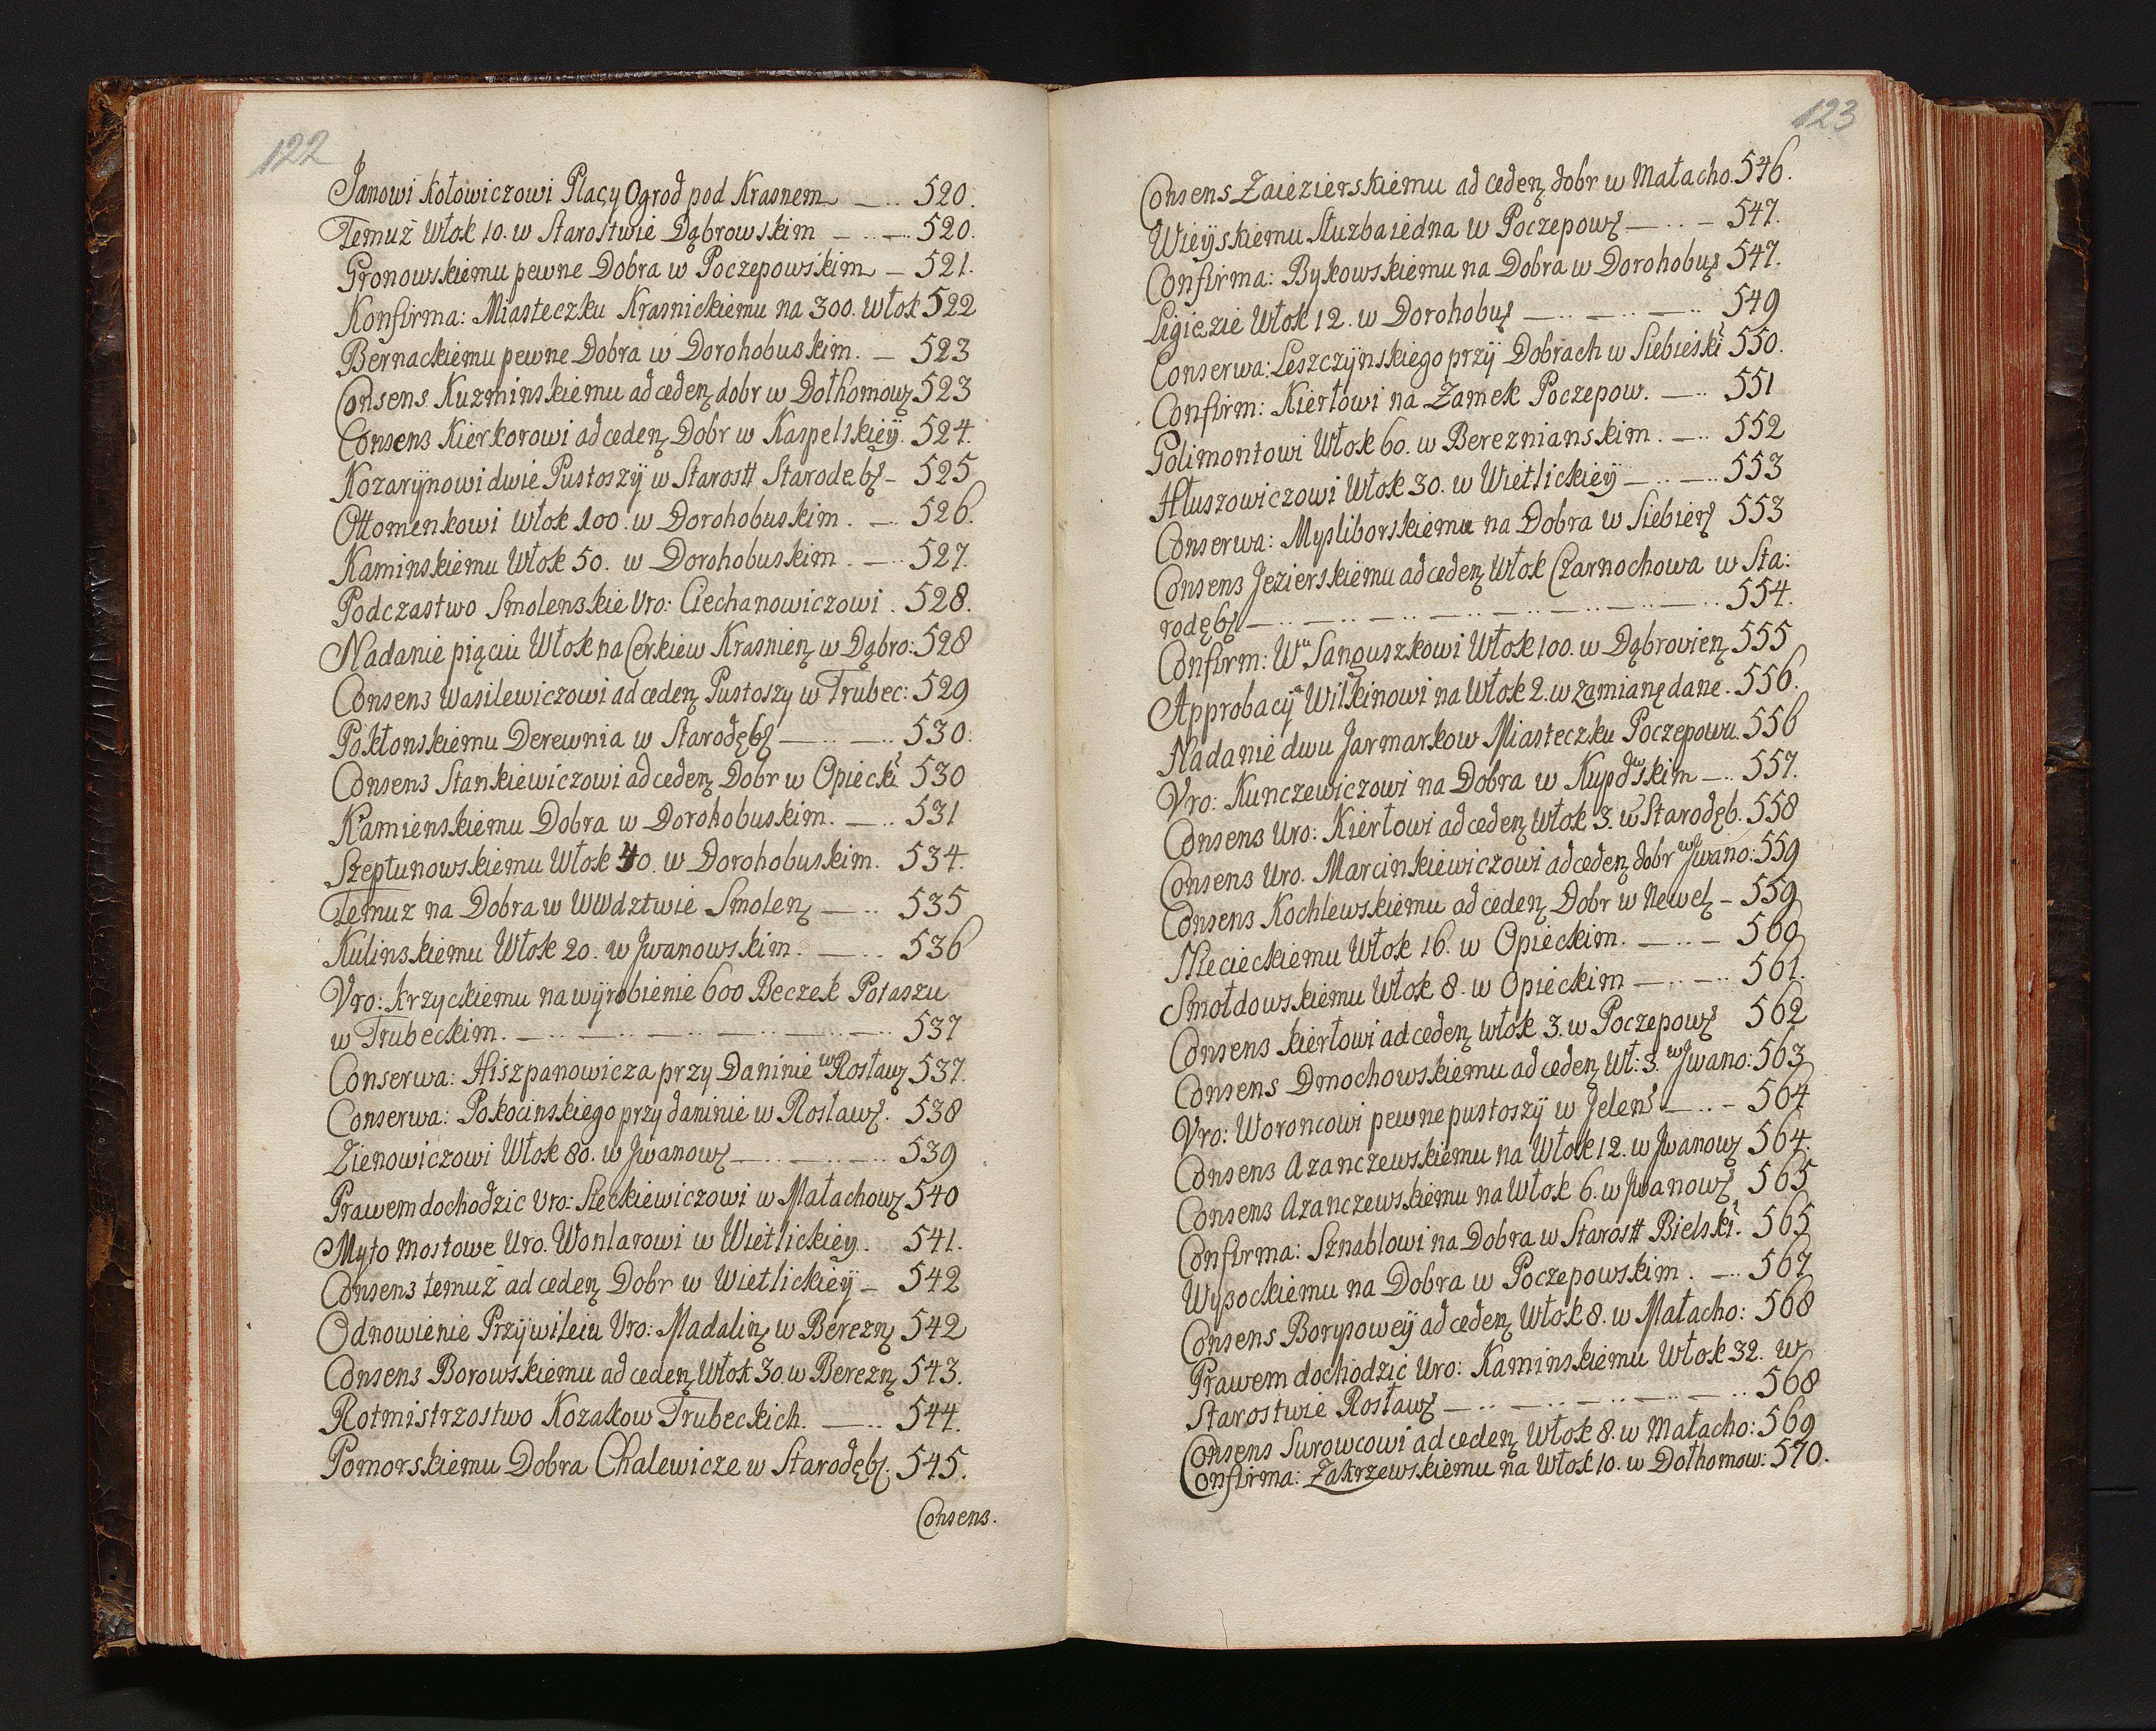 122
Janowi Kołowiczowi Placy Ogrod pod Krasnem — .. 520.
Temuż Włok 10. w Starostwie Dąbrowskim — .. — 520.
Gronowskiemu pewne Dobra w Poczepowskim — 521.
Konfirma: Miasteczku Krasnickiemu na 300. Włok 522
Bernackiemu pewne Dobra w Dorohobuskim. — 523
Consens Kuzminskiemu ad cedenʒ dobr w Dołhomowʒ 523
Consens Kierkorowi ad cedenʒ Dobr w Kaspelskiey. 524.
Kozarynowi dwie Pustoszy w Starostt Starodębʒ — 525
Ottomenkowi Włok 100. w Dorohobuskim. — 526.
Kaminskiemu Włok 50. w Dorohobuskim. — .. 527.
Podczastwo Smolenskie Uro: Ciechanowiczowi. 528.
Nadanie piąciu Włok na Cerkiew Krasnienʒ w Dąbro: 528
Consens Wasilewiczowi ad cedenʒ Pustoszy w Trubec: 529
Pokłonskiemu Derewnia w Starodębʒ — .. — .. 530.
Consens Stankiewiczowi ad cedenʒ Dobr w Opiecki 530
Kamienskiemu Dobra w Dorohobuskim. — .. 531
Szepłunowskiemu Włok 40. w Dorohobuskim. 534.
Temuż na Dobra w Wwdztwie Smolenʒ — .. 535
Kulinskiemu Włok 20. w Jwanowskim. — .. 536
Vro: Krzyckiemu na wyrobienie 600 Beczek Potaszu
w Trubeckim. — .. — .. — .. — .. 537
Conserwa: Hiszpanowicza przy Daninie w Rosławʒ 537.
Conserwa: Pokocinskiego przy daninie w Rosławʒ. 538
Zienowiczowi Włok 80. w Jwanowʒ — .. — .. — 539
Prawem dochodzic Uro: Sieckiewiczowi w Małachowʒ 540
Myto mostowe Uro. Wonlarowi w Wietlickiey. 541.
Consens temuż ad cedenʒ Dobr w Wietlickiey — 542
Odnowienie Przywileiu Uro: Madalinʒ w Bereznʒ 542
Consens Borowskiemu ad cedenʒ Włok 30. w Bereznʒ 543.
Rotmistrzostwo Kozakow Trubeckich. — .. 544.
Pomorskiemu Dobra Chalewicze w Starodębʒ. 545.
Consens.
123
Consens Zaiezierskiemu ad cedenʒ dobr w Małacho. 546.
Wieyskiemu Słuzba iedna w Poczepowʒ — .. — 547.
Confirma: Bykowskiemu na Dobra w Dorohobuʒ 547.
Ligiezie Włok 12. w Dorohobuʒ — .. — .. — .. 549
Conserwa: Leszczynskiego przy Dobrach w Siebieski 550.
Confirm: Kierłowi na Zamek Poczepow. — .. 551
Golimontowi Włok 60. w Bereznianskim. — .. 552
Hłuszowiczowi Włok 30. w Wietlickiey — .. — .. 553
Conserwa: Mysliborskiemu na Dobra w Siebierʒ 553
Consens Jezierskiemu ad cedenʒ Włok Czarnochowa w Sta:
rodębʒ — .. — .. — .. — .. — .. 554.
Confirm: Wu Sanguszkowi Włok 100. w Dąbrovienʒ 555
Approbacya Wilkinowi na Włok 2. w zamianę dane. 556.
Nadanie dwu Jarmarkow Miasteczku Poczepowu. 556
Vro: Kunczewiczowi na Dobra w Kupowskim — .. 557.
Consens Uro: Kierłowi ad cedenʒ Włok 3. w Starodęb. 558
Consens Uro. Marcinkiewiczowi ad cedenʒ dobr w Jwano: 559
Consens Kochlewskiemu ad cedenʒ Dobr w Newelʒ — 559
Niecieckiemu Włok 16. w Opieckim. — .. — 560
Smołdowskiemu Włok 8. w Opieckim — .. — .. 561.
Consens Kierłowi ad cedenʒ Włok 3. w Poczepowʒ 562
Consens Dmochowskiemu ad cedenʒ Wł: 3. w Jwano: 563
Vro: Woroncowi pewne pustoszy w Jelenʒ — .. — 564
Consens Azanczewskiemu na Włok 12. w Jwanowʒ 564.
Consens Azanczewskiemu na Włok 6. w Jwanowʒ 565
Confirma: Sznablowi na Dobra w Starostt Bielski. 565
Wysockiemu na Dobra w Poczepowskim. — .. 567
Consens Borysowey ad cedenʒ Włok 8. w Małacho: 568
Prawem dochodzic Uro: Kaminskiemu Włok 32. w
Starostwie Rosławʒ — .. — .. — .. — .. 568
Consens Surowcowi ad cedenʒ Włok 8. w Małacho: 569
Confirma: Zakrzewskiemu na Włok 10. w Dołhomow: 570.